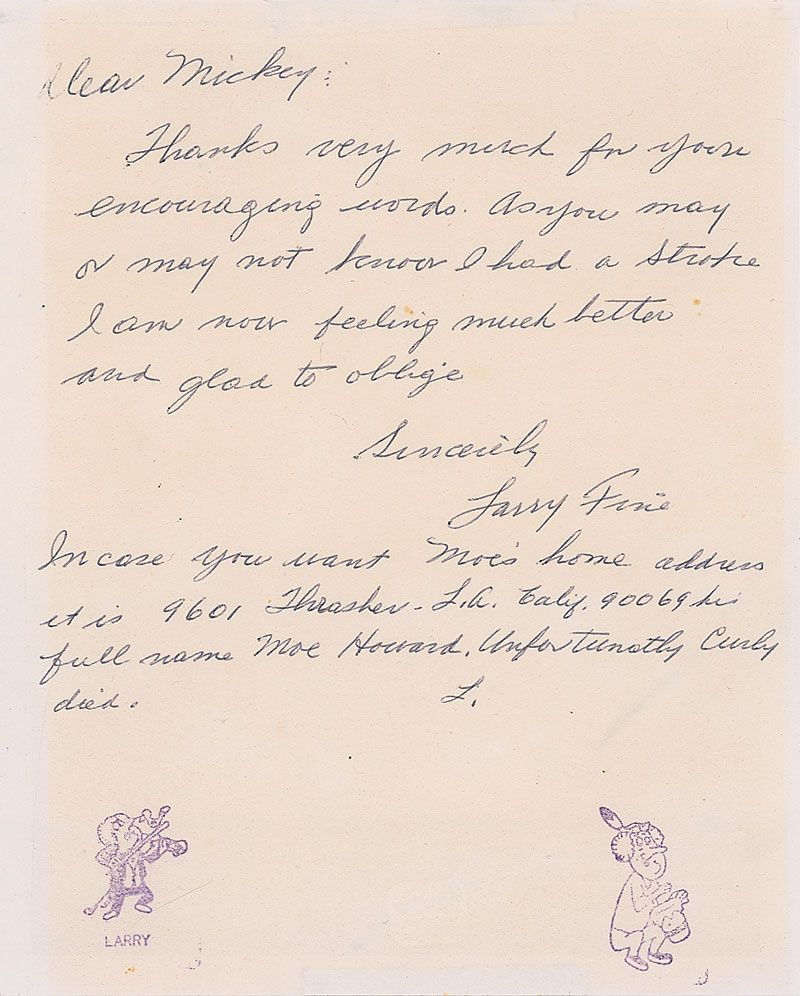 Dear Mickey:
Thanks very much for your
encouraging words. As you may
or may not know I had a stroke
I am now feeling much better
and glad to oblige
Sincerely
Larry Fine
In case you want Moe's home address
it is 9601 Thrasher - L.A. Calif. 90069 his
full name Moe Howard. Unfortunatly Curly
died. L.
LARRY